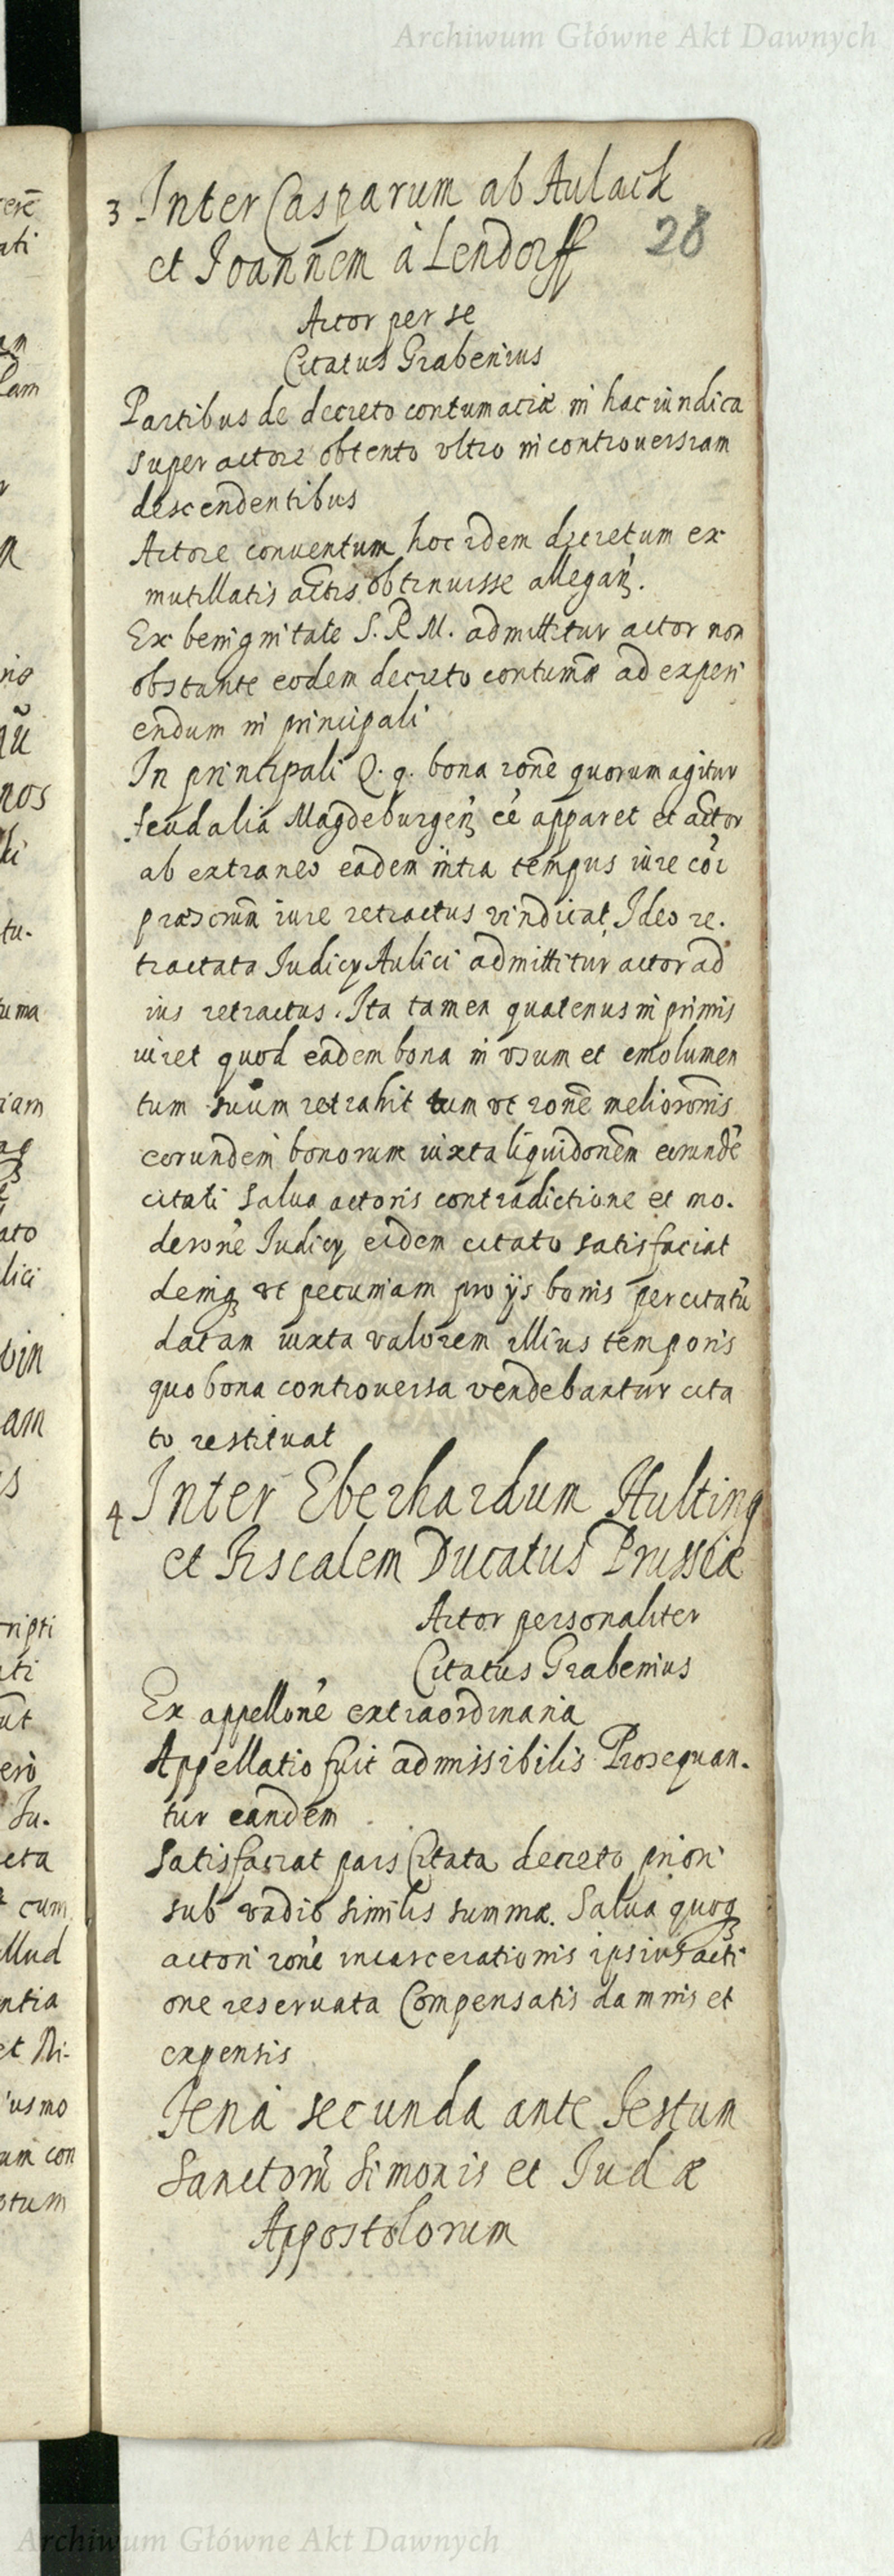 Archiwum Główne Akt Dawnych
3 Inter Casparum ab Aulack
28
et Joannem à Lendorff
Actor per se
Citatus Grabenius
Partibus de decreto contumaciæ in hac iuridica
super actore obtento vltro in controuersiam
descendentibus
Actore conuentum hoc idem decretum ex
mutillatis actis obtinuisse allegan̄.
Ex benignitate S. R M. admittitur actor non
obstante eodem decreto contumǣ ad experi
endum in principali
In principali Q. q. bona rone̅ quorum agitur
feudalia Magdeburgen̄ ee̅ apparet et actor
ab extraneo eadem intra tempus iure coi̅
præscrum̅ iure retractus vindicat Ideo re.
tractata Iudicy Aulici admittitur actor ad
ius retractus. Ita tamen quatenus in primis
iuret quod eadem bona in vsum et emolumen
tum suum retrahit tum vt rone̅ melioronis̅
eorundem bonorum iuxta liquidonem̅ eorunde̅
citati salua actoris contradictione et mo.
derone̅ Iudicy eidem citato satisfaciat
deniq₃ vt pecuniam pro ijs bonis per citatu̅
datam iuxta valorem illius temporis
quo bona controuersa vendebantur cita
to restituat
4 Inter Eberhardum Hulting
et Fiscalem Ducatus Prussiæ
Actor personaliter
Citatus Grabenius
Ex appellone̅ extraordinaria
Appellatio fuit admissibilis Prosequan.
tur eandem
Satisfaciat pars Citata decreto priori
sub vadio similis summæ. Salua quoq₃
actori rone̅ incarcerationis ipsius acti
one reseruata Compensatis damnis et
expensis
Feria secunda ante Festum
Sanctoru̅ Simonis et Iudæ
Appostolorum
Archiwum Główne Akt Dawnych